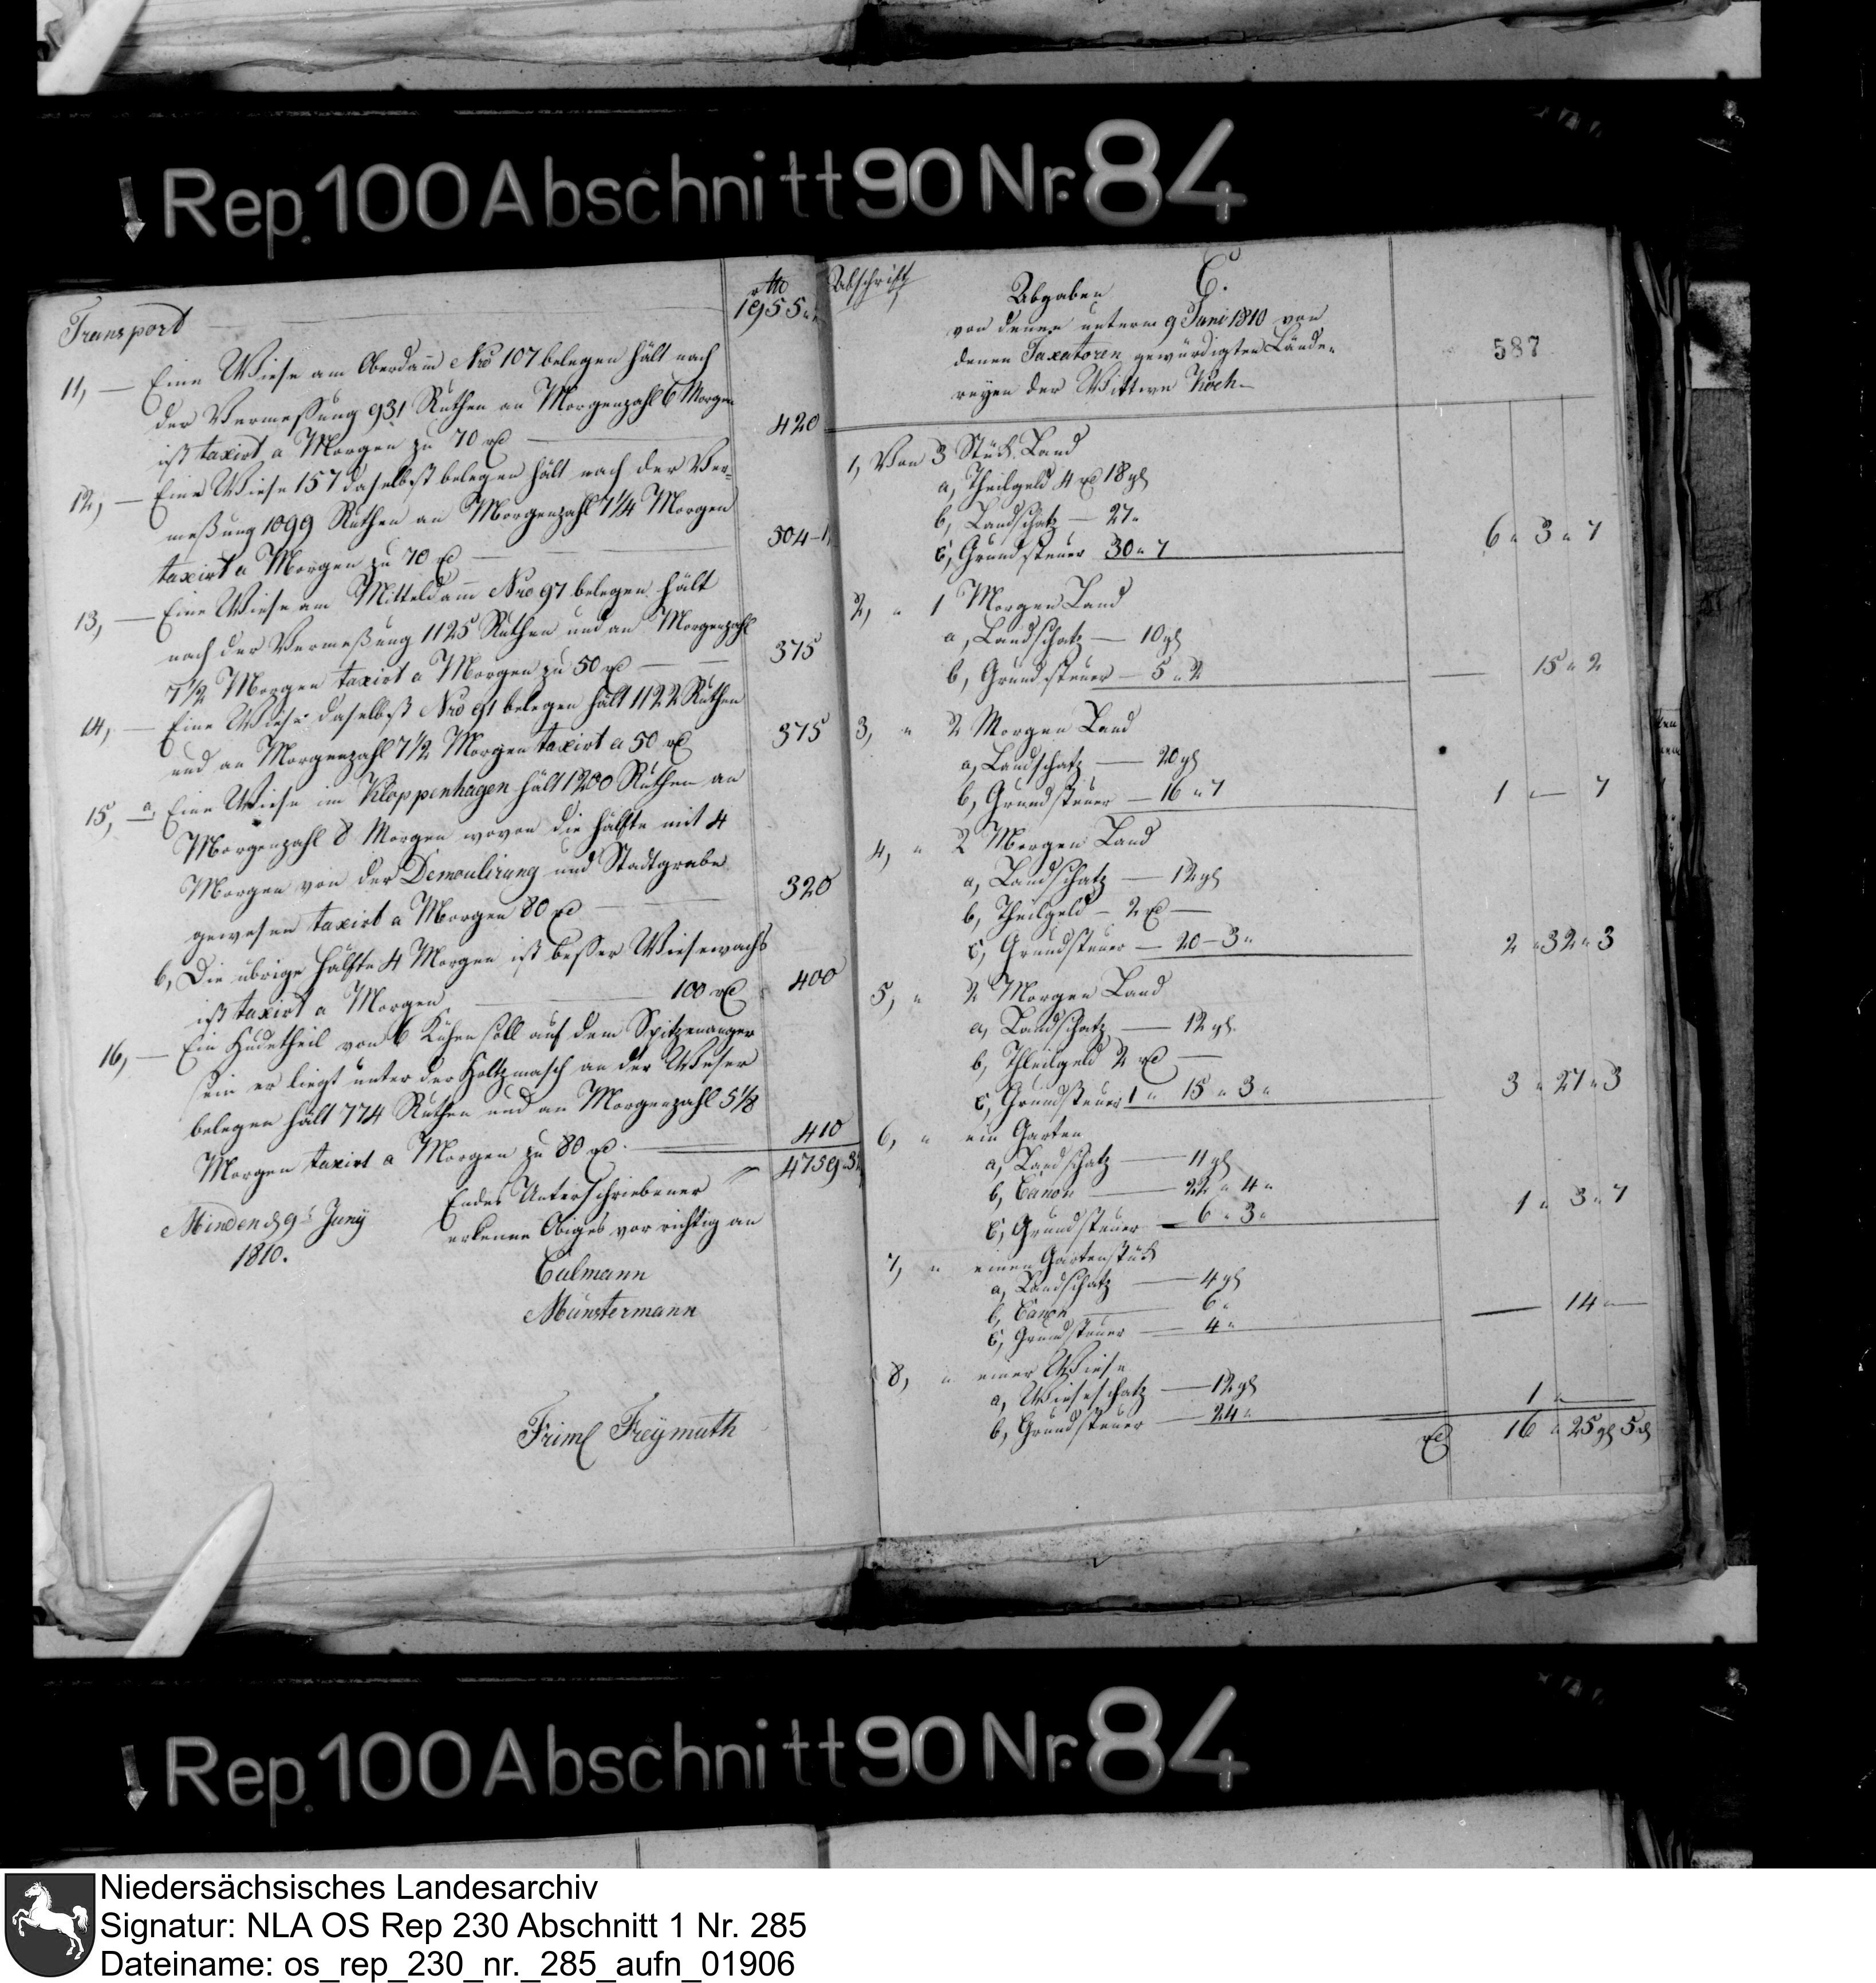 Rep. 100 Abschnitt 90 Nr. 84
Transport
1955
11, — Eine Wiese am Oberdam̄ Nro 107 belegen hält nach
der Vermeßung 931 Ruthen an Morgenzahl 6 Morgen
ist taxirt a Morgen zu 70 rθ — 420
12, — Eine Wiese 157 daselbst belegen hält nach der Ver-
meßung 1099 Ruthen an Morgenzahl 7 1/4 Morgen
taxirt a Morgen zu 70 rθ — 504
13, — Eine Wiese am Mitteldam̄ Nro 97 belegen hält
nach der Vermeßung 1125 Ruthen und an Morgenzahl
7 1/2 Morgen taxirt a Morgen zu 50 rθ — 375
14, — Eine Wiese daselbst Nro 91 belegen hält 1122 Ruthen
und an Morgenzahl 7 1/2 Morgen taxirt a 50 rθ 375
15, — a, Eine Wiese im Kloppenhagen hält 1200 Ruthen an
Morgenzahl 8 Morgen wovon die Hälfte mit 4
Morgen von der Demoulirung und Stadtgrabe
gewesen taxirt a Morgen 80 rθ — 320
b, Die übrige Hälfte 4 Morgen ist beßer Wiesewachs
ist taxirt a Morgen — 100 rθ 400
16, — Ein Hudetheil von 6 Kühen soll auf dem Spitzenanger
sein er liegt unter der Holtzmasch an der Weser
belegen hält 774 Ruthen und an Morgenzahl 5 1/8
Morgen taxirt a Morgen zu 80 rθ. — 410
4759
Minden d 9t Juny
1810.
Endes Unterschriebener
erkenne Obiges vor richtig an
Culmann
Münstermann
Freymuth
Abschrift
C.
Abgaben
von denen unterm 9 Juni 1810 von
denen Taxatoren gewürdigten Lände-
reyen der Wittwe Koch
587
1, Von 3 Stück Land
a, Theilgeld 4 rθ 18 gl
b, Landschatz — 27 "
c, Grundsteuer 30 " 7 6 " 3 " 7
2, " 1 Morgen Land
a, Landschatz — 10 gl
b, Grundsteuer — 5 " 2 — 15 " 2
3, " 2 Morgen Land
a, Landschatz — 20 gl
b, Grundsteuer — 16 " 7 1 " — 7
4, " 2 Morgen Land
a, Landschatz — 12 gl
b, Theilgeld — 2 rθ —
c, Grundsteuer — 20 — 3 " 2 " 32 " 3
5, " 2 Morgen Land
a, Landschatz — 12 gl.
b, Theilgeld 2 rθ —
c, Grundsteuer 1 " 15 " 3 " 3 " 27 " 3
6, " ein Garten
a, Landschatz — 11 gl
b, Canon — 22 " 4 "
c, Grundsteuer — 6 " 3 " 1 " 3 " 7
7, " einen Gartenstück
a, Landschatz — 4 gl
b, Canon — 6 "
c, Grundsteuer — 4 " — 14 " —
8, " einer Wiese
a, Wieseschatz — 12 gl
b, Grundsteuer — 24 " 1 " —
rθ 16 " 25 gl 5 d
Rep. 100 Abschnitt 90 Nr. 84
Niedersächsisches Landesarchiv
Signatur: NLA OS Rep 230 Abschnitt 1 Nr. 285
Dateiname: os_rep_230_nr._285_aufn_01906